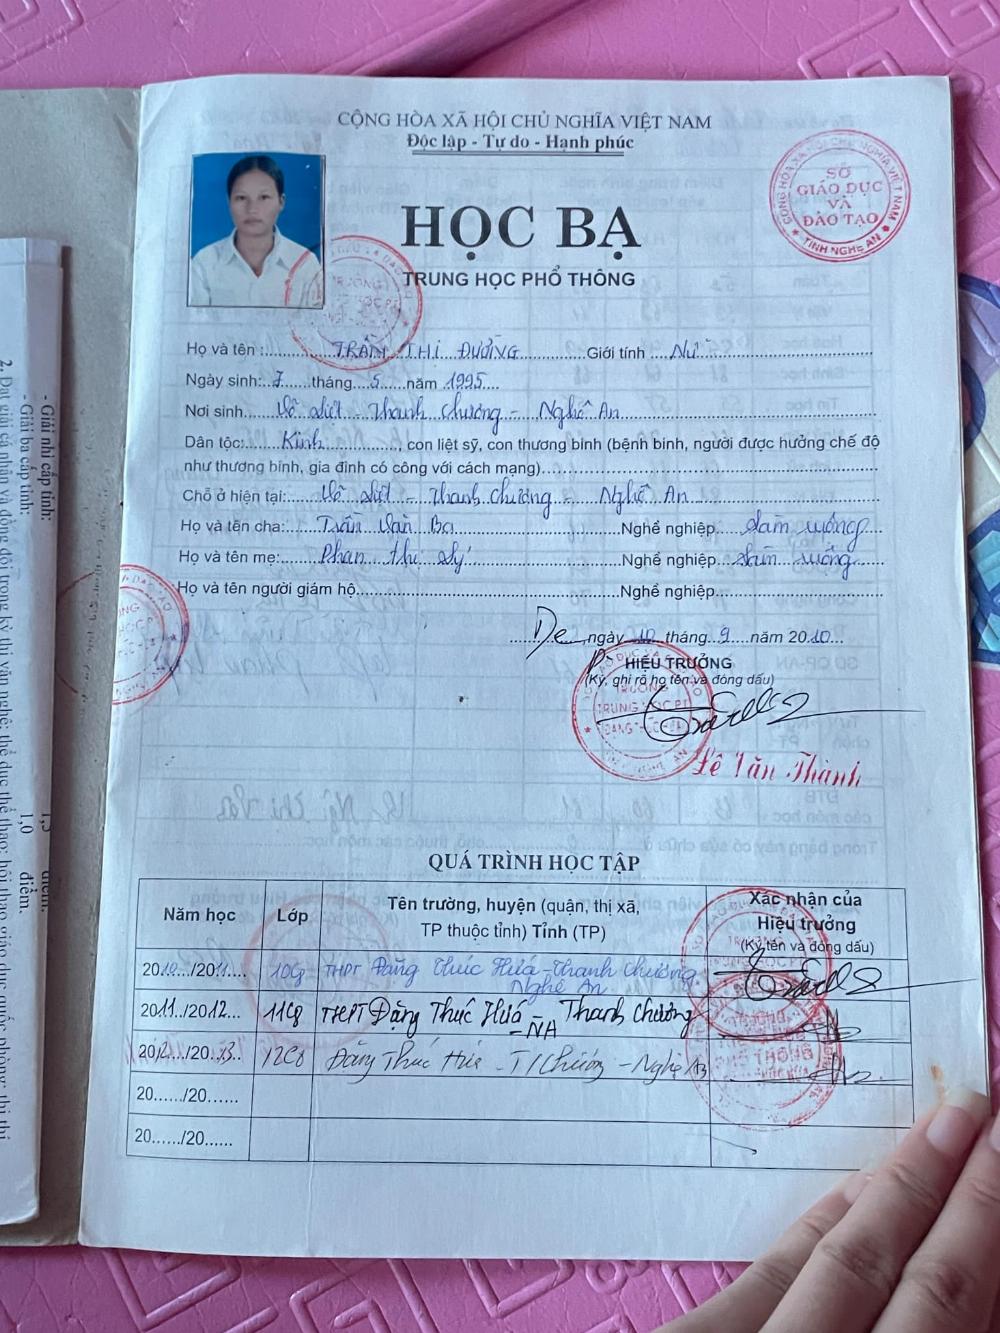 CỘNG HÒA XÃ HỘI CHỦ NGHĨA VIỆT NAM
Độc lập - Tự do - Hạnh phúc
CỘNG HÒA XÃ HỘI CHỦ NGHĨA VIỆT NAM
SỞ
GIÁO DỤC
VÀ
ĐÀO TẠO
TỈNH NGHỆ AN
HỌC BẠ
TRUNG HỌC PHỔ THÔNG
Họ và tên : TRẦN THỊ ĐƯỜNG Giới tính Nữ
Ngày sinh: 7 tháng 5 năm 1995
Nơi sinh Võ Liệt - Thanh Chương - Nghệ An
Dân tộc: Kinh, con liệt sỹ, con thương binh (bệnh binh, người được hưởng chế độ
như thương binh, gia đình có công với cách mạng)
Chỗ ở hiện tại: Võ Liệt - Thanh Chương - Nghệ An
Họ và tên cha: Trần Văn Ba Nghề nghiệp Làm ruộng
Họ và tên mẹ: Phan Thị Lý Nghề nghiệp Làm ruộng
Họ và tên người giám hộ Nghề nghiệp
ngày 10 tháng 9 năm 2010
HIỆU TRƯỞNG
(Ký, ghi rõ họ tên và đóng dấu)
Lê Văn Thành
QUÁ TRÌNH HỌC TẬP
Năm học Lớp Tên trường, huyện (quận, thị xã, TP thuộc tỉnh) Tỉnh (TP) Xác nhận của Hiệu trưởng (Ký tên và đóng dấu)
2010/2011 10C8 THPT Đặng Thúc Hứa - Thanh Chương Nghệ An
2011/2012 11C8 THPT Đặng Thúc Hứa Thanh Chương - NA
2012/2013 12C8 Đặng Thúc Hứa - T/Chương - Nghệ An
20....../20......
20....../20......
- Giải nhì cấp tỉnh: 1,5 điểm.
- Giải ba cấp tỉnh: 1,0 điểm.
2. Đạt giải cá nhân và đồng đội trong kỳ thi văn nghệ; thể dục thể thao; hội thao giáo dục quốc phòng; thi thí